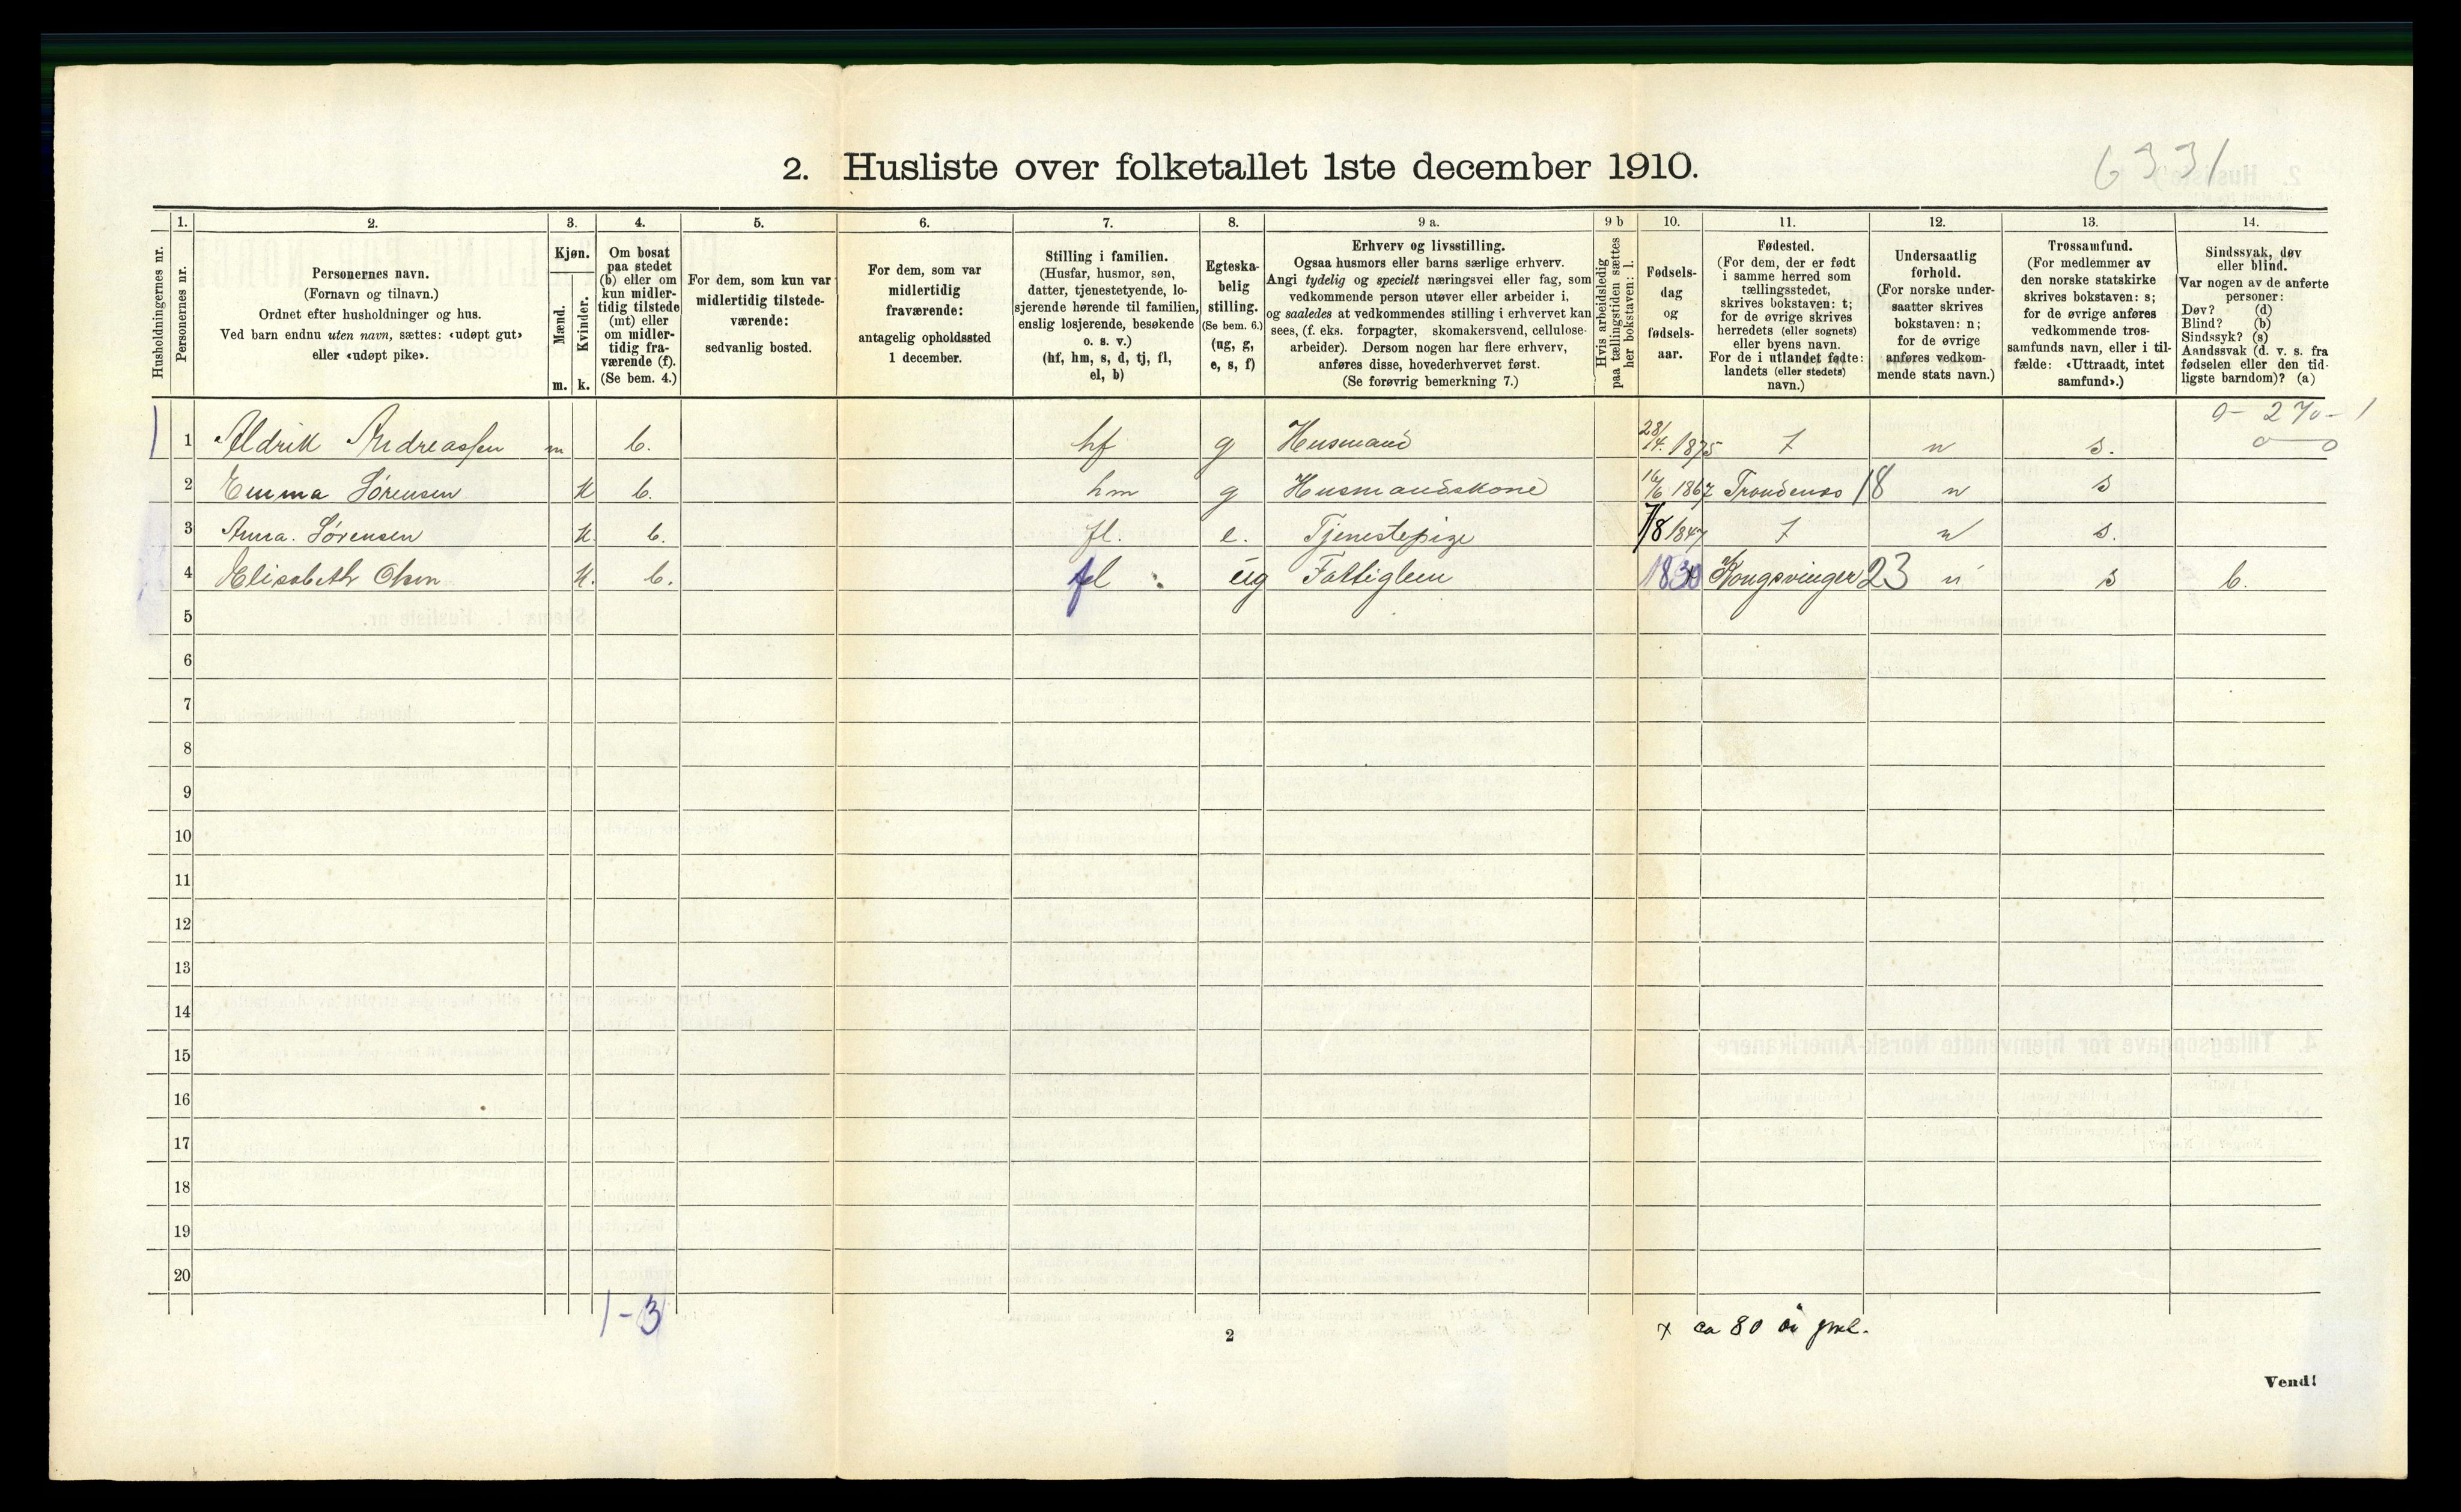 2. Husliste over folketallet 1ste december 1910.
6331
1. 2. 3. 4. 5. 6. 7. 8. 9 a. 9 b 10. 11. 12. 13. 14.
Husholdningernes nr.
Personernes nr.
Personernes navn.
(Fornavn og tilnavn.)
Ordnet efter husholdninger og hus.
Ved barn endnu uten navn, sættes: «udøpt gut»
eller «udøpt pike».
Kjøn.
Mænd.
Kvinder.
m. k.
Om bosat
paa stedet
(b) eller om
kun midler-
tidig tilstede
(mt) eller
om midler-
tidig fra-
værende (f).
(Se bem. 4.)
For dem, som kun var
midlertidig tilstede-
værende:
sedvanlig bosted.
For dem, som var
midlertidig
fraværende:
antagelig opholdssted
1 december.
Stilling i familien.
(Husfar, husmor, søn,
datter, tjenestetyende, lo-
sjerende hørende til familien,
enslig losjerende, besøkende
o. s. v.)
(hf, hm, s, d, tj, fl,
el, b)
Egteska-
belig
stilling.
(Se bem. 6.)
(ug, g,
e, s, f)
Erhverv og livsstilling.
Ogsaa husmors eller barns særlige erhverv.
Angi tydelig og specielt næringsvei eller fag, som
vedkommende person utøver eller arbeider i,
og saaledes at vedkommendes stilling i erhvervet kan
sees, (f. eks. forpagter, skomakersvend, cellulose-
arbeider). Dersom nogen har flere erhverv,
anføres disse, hovederhvervet først.
(Se forøvrig bemerkning 7.)
Hvis arbeidsledig
paa tællingstiden sættes
her bokstaven: l.
Fødsels-
dag
og
fødsels-
aar.
Fødested.
(For dem, der er født
i samme herred som
tællingsstedet,
skrives bokstaven: t;
for de øvrige skrives
herredets (eller sognets)
eller byens navn.
For de i utlandet fødte:
landets (eller stedets)
navn.)
Undersaatlig
forhold.
(For norske under-
saatter skrives
bokstaven: n;
for de øvrige
anføres vedkom-
mende stats navn.)
Trossamfund.
(For medlemmer av
den norske statskirke
skrives bokstaven: s;
for de øvrige anføres
vedkommende tros-
samfunds navn, eller i til-
fælde: «Uttraadt, intet
samfund».)
Sindssvak, døv
eller blind.
Var nogen av de anførte
personer:
Døv? (d)
Blind? (b)
Sindssyk? (s)
Aandssvak (d. v. s. fra
fødselen eller den tid-
ligste barndom)? (a)
1 1 Aldrik Andreassen m b. hf g Husmand 28/4. 1875 t n s.
2 Emma Sørensen k b. hm g Husmandskone 16/6 1867 Trondenes 18 n s
3 Anna. Sørensen k. b. fl. e. Tjenestepige 7/8 1847 t n s.
4 Elisabeth Olsen k. b. fl ug Fattiglem 1830 Kongsvinger 23 n s b.
5
6
7
8
9
10
11
12
13
14
15
16
17
18
19
20
1-3
2
x ca 80 år gml.
Vend!